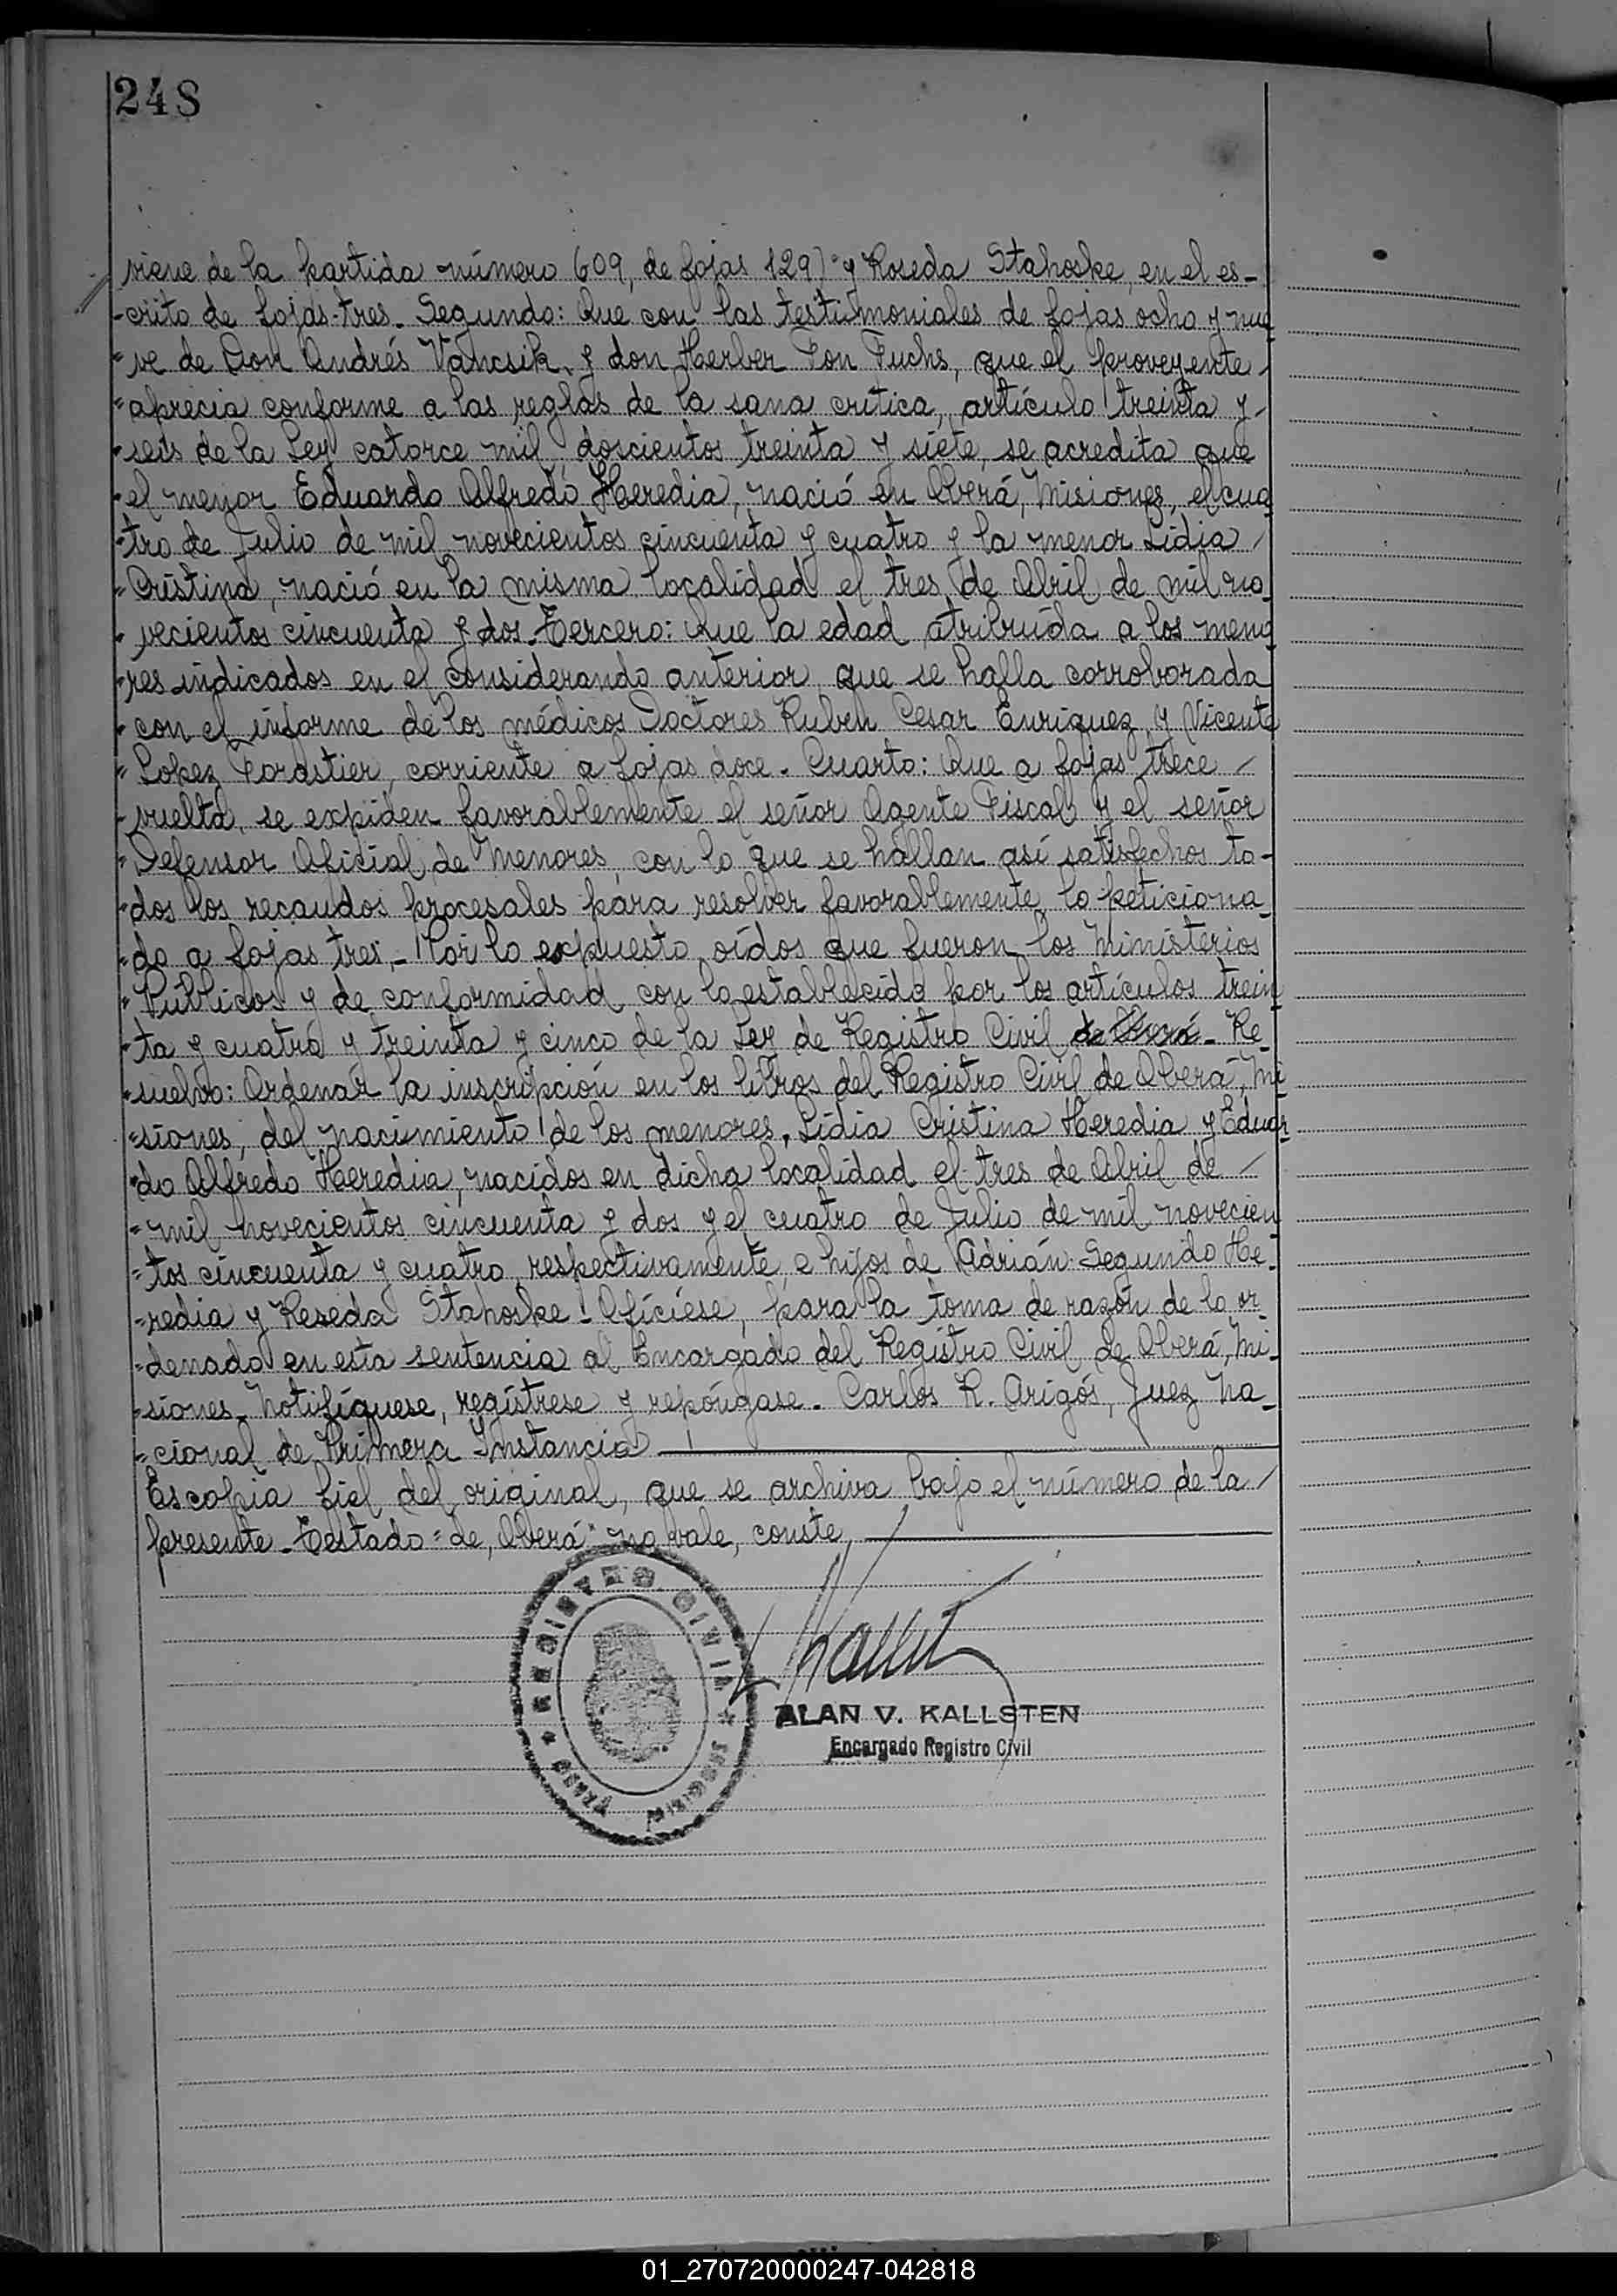 248
viene de la partida número 609, de fojas 129) y Roseda Stahoske, en el es-
-crito de fojas tres. Segundo: Que con las testimoniales de fojas ocho y nue
"ve de Don Andrés Vancsik, y don Herber Fon Fuchs, que el proveyente
"aprecia conforme a las reglas de la sana crítica, artículo treinta y
"seis de la Ley catorce mil doscientos treinta y siete, se acredita que
"el menor Eduardo Alfredo Heredia, nació en Oberá, Misiones, el cua
"tro de Julio de mil novecientos cincuenta y cuatro y la menor Lidia
"Cristina, nació en la misma localidad el tres de Abril de mil no
"vecientos cincuenta y dos. Tercero: Que la edad atribuída a los meno
"res indicados en el considerando anterior que se halla corroborada
"con el informe de los médicos Doctores Ruben Cesar Enriquez y Vicente
"Lopez Forastier, corriente a fojas doce. Cuarto: Que a fojas trece
"vuelta, se expiden favorablemente el señor Agente Fiscal y el señor
"Defensor Oficial de Menores, con lo que se hallan así satisfechos to-
"dos los recaudos procesales para resolver favorablemente lo peticiona
"do a fojas tres.- Por lo expuesto, oídos que fueron los Ministerios
"Públicos y de conformidad con lo establecido por los artículos trein
"ta y cuatro y treinta y cinco de la Ley de Registro Civil de Oberá - Re
"suelvo: Ordenar la inscripción en los libros del Registro Civil de Oberá, Mi
"siones, del nacimiento de los menores, Lidia Cristina Heredia y Eduar
"do Alfredo Heredia, nacidos en dicha localidad el tres de Abril de
"mil novecientos cincuenta y dos y el cuatro de Julio de mil novecien
"tos cincuenta y cuatro, respectivamente e hijos de Adrián Segundo He
"redia y Reseda Stahoske. Ofíciese, para la toma de razón de lo or
"denado en esta sentencia al Encargado del Registro Civil de Oberá, Mi
"siones. Notifíquese, regístrese y repóngase. Carlos R. Arigós, Juez Na
"cional de Primera Instancia
Es copia fiel del original, que se archiva bajo el número de la
presente. Testado = de, Oberá = no vale, conste,
REGISTRO CIVIL
OBERA MISIONES
ALAN V. KALLSTEN
Encargado Registro Civil
01_270720000247-042818